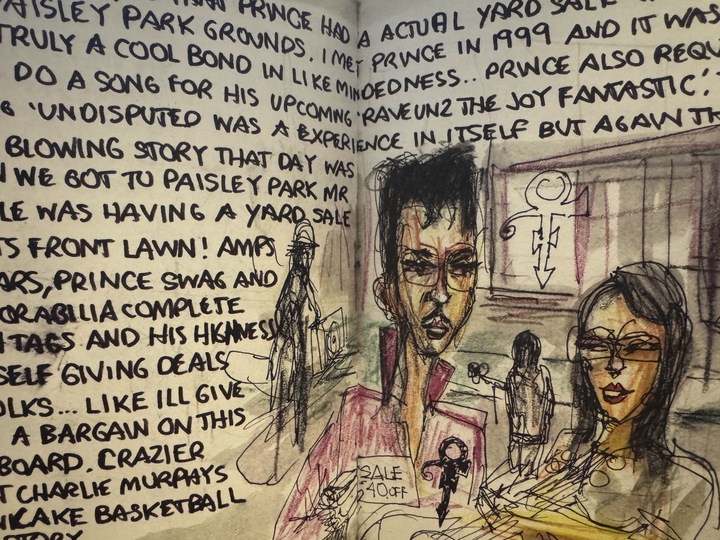 THAN PRINCE HAD A ACTUAL YARD SALE
PAISLEY PARK GROUNDS. I MET PRINCE IN 1999 AND IT WAS
TRULY A COOL BOND IN LIKE MINDEDNESS.. PRINCE ALSO REQU
DO A SONG FOR HIS UPCOMING 'RAVE UN2 THE JOY FANTASTIC'.
'UNDISPUTED WAS A EXPERIENCE IN ITSELF BUT AGAIN TH
BLOWING STORY THAT DAY WAS
WE GOT TO PAISLEY PARK MR
LE WAS HAVING A YARD SALE
TS FRONT LAWN! AMPS
ARS, PRINCE SWAG AND
ORABILIA COMPLETE
TAGS AND HIS HIGHNESS
SELF GIVING DEALS
OLKS... LIKE ILL GIVE
A BARGAIN ON THIS
BOARD. CRAZIER
T CHARLIE MURPHYS
NCAKE BASKETBALL
STORY
SALE
40 OFF